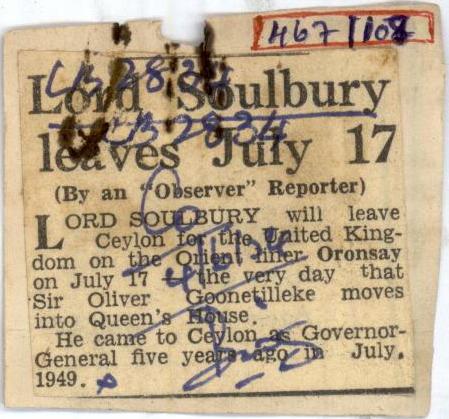 467/108
Lord Soulbury
leaves July 17
(By an "Observer" Reporter)
LORD SOULBURY will leave
Ceylon for the United King-
dom on the Orient liner Oronsay
on July 17 — the very day that
Sir Oliver Goonetilleke moves
into Queen's House.
He came to Ceylon as Governor-
General five years ago in July,
1949.